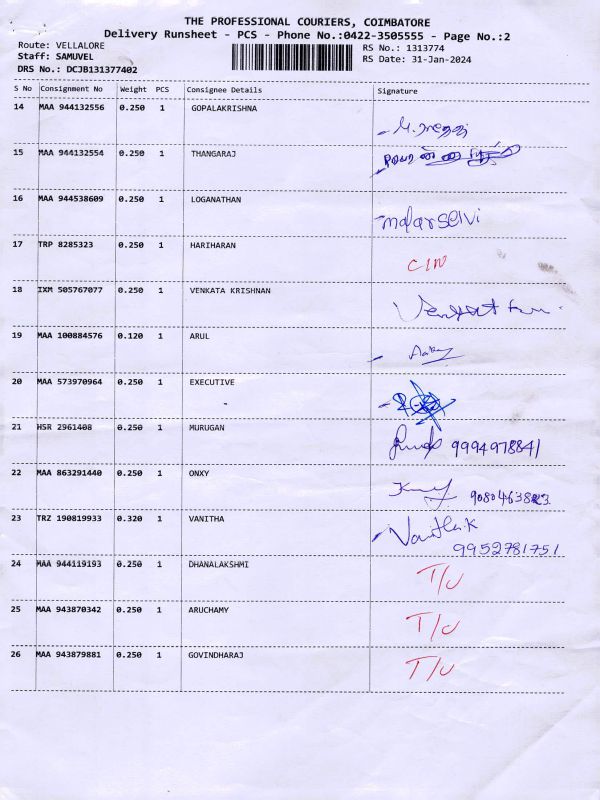 THE PROFESSIONAL COURIERS, COIMBATORE
Delivery Runsheet - PCS - Phone No.:0422-3505555 - Page No.:2
Route: VELLALORE RS No.: 1313774
Staff: SAMUVEL RS Date: 31-Jan-2024
DRS No.: DCJB131377402
S No Consignment No Weight PCS Consignee Details Signature
14 MAA 944132556 0.250 1 GOPALAKRISHNA
15 MAA 944132554 0.250 1 THANGARAJ
16 MAA 944538609 0.250 1 LOGANATHAN
malarselvi
17 TRP 8285323 0.250 1 HARIHARAN
CIN
18 IXM 505767077 0.250 1 VENKATA KRISHNAN
19 MAA 100884576 0.120 1 ARUL
20 MAA 573970964 0.250 1 EXECUTIVE
21 HSR 2961408 0.250 1 MURUGAN
9994978841
22 MAA 863291440 0.250 1 ONXY
23 TRZ 190819933 0.320 1 VANITHA
Vanitha.K
9952781751
24 MAA 944119193 0.250 1 DHANALAKSHMI
T/U
25 MAA 943870342 0.250 1 ARUCHAMY
T/U
26 MAA 943879881 0.250 1 GOVINDHARAJ
T/U